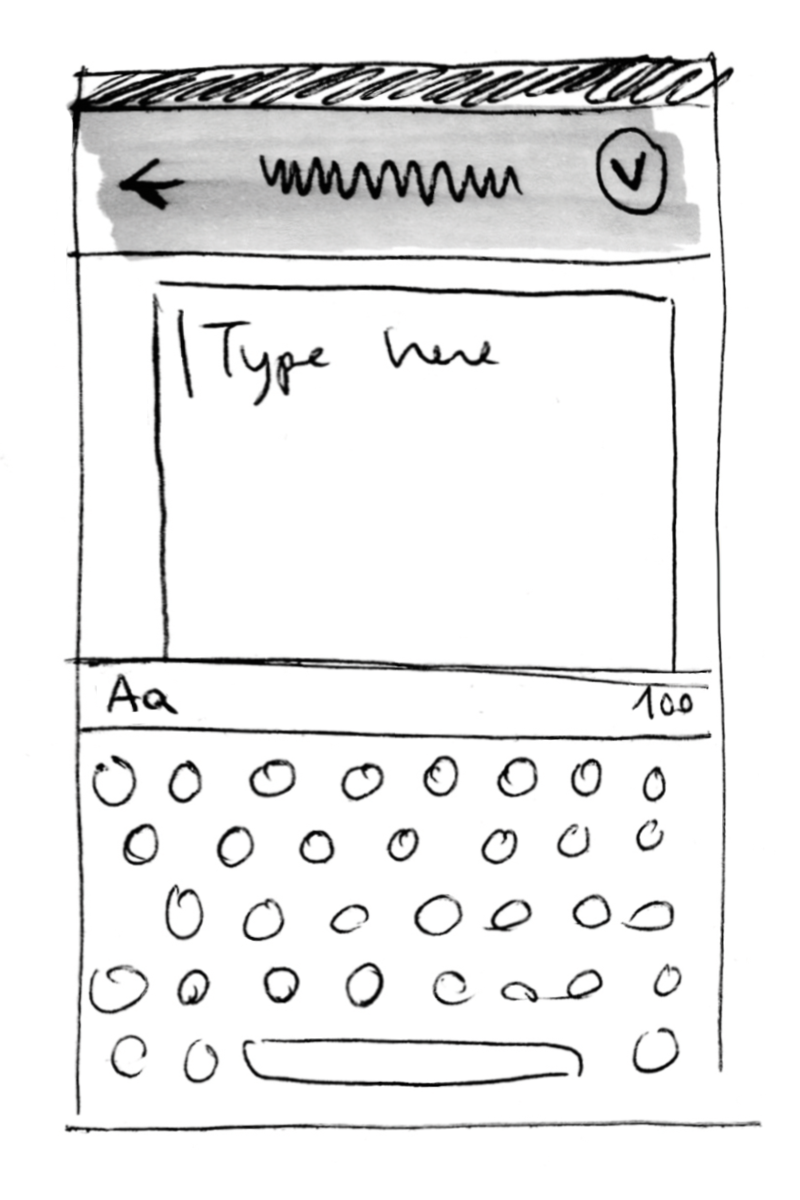 Type here
Aa
100